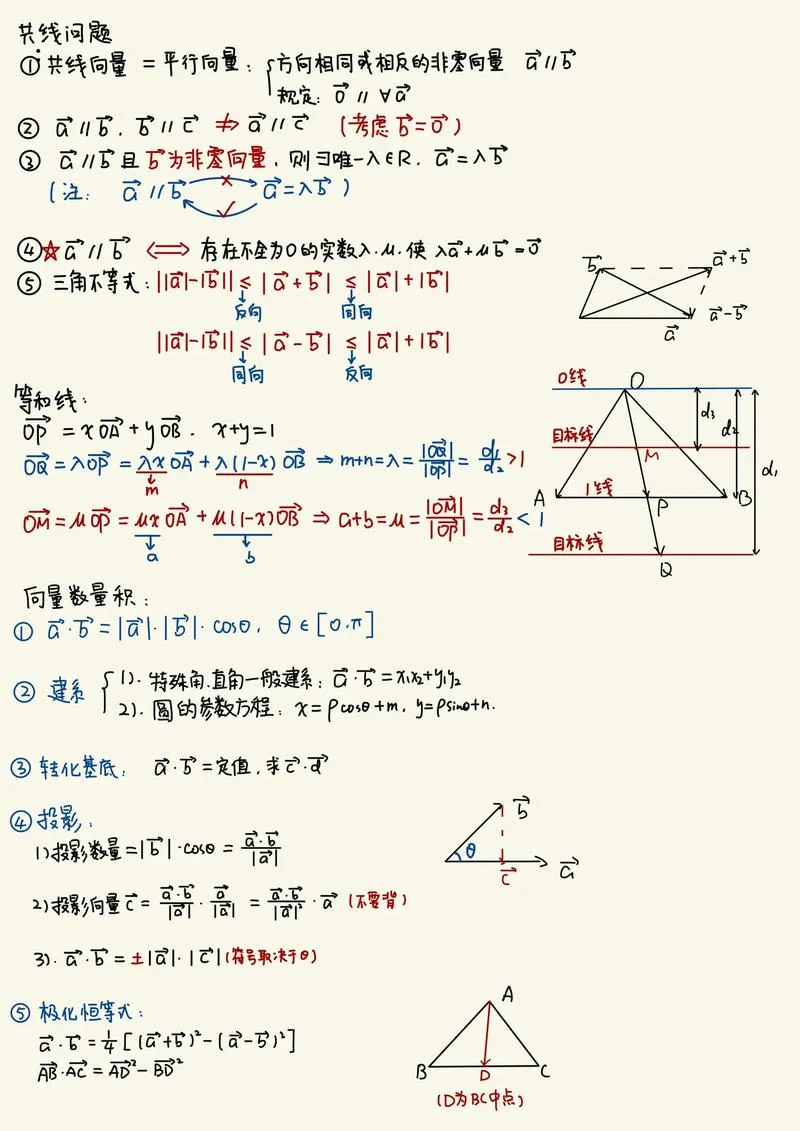 共线问题
① 共线向量 = 平行向量: { 方向相同或相反的非零向量 a⃗ // b⃗
规定: 0⃗ // ∀a⃗
② a⃗ // b⃗, b⃗ // c⃗ ⇏ a⃗ // c⃗ (考虑 b⃗ = 0⃗)
③ a⃗ // b⃗ 且 b⃗ 为非零向量, 则 ∃ 唯一 λ∈R, a⃗ = λb⃗
(注: a⃗ // b⃗ × a⃗ = λb⃗ )
✓
④ ☆ a⃗ // b⃗ ⟺ 存在不全为0的实数λ.μ.使 λa⃗+μb⃗=0⃗
⑤ 三角不等式: ||a⃗|-|b⃗|| ≤ |a⃗+b⃗| ≤ |a⃗|+|b⃗|
反向 同向
||a⃗|-|b⃗|| ≤ |a⃗-b⃗| ≤ |a⃗|+|b⃗|
同向 反向
b⃗ a⃗+b⃗
a⃗-b⃗
a⃗
等和线:
OP⃗ = xOA⃗ + yOB⃗. x+y=1
OQ⃗ = λOP⃗ = λxOA⃗ + λ(1-x)OB⃗ ⇒ m+n=λ= |OQ⃗|/|OP⃗| = d₁/d₂ >1
m n
OM⃗ = μOP⃗ = μxOA⃗ + μ(1-x)OB⃗ ⇒ a+b=μ= |OM⃗|/|OP⃗| = d₃/d₂ < 1
a b
0线 O
d₃
d₂
目标线 M
d₁
A 1线 P B
目标线
Q
向量数量积:
① a⃗·b⃗ = |a⃗|·|b⃗|·cosθ, θ∈[0.π]
② 建系 { 1). 特殊角.直角一般建系: a⃗·b⃗ = x₁x₂+y₁y₂
2). 圆的参数方程: x=ρcosθ+m, y=ρsinθ+n.
③ 转化基底: a⃗·b⃗=定值, 求 c⃗·d⃗
④ 投影:
1) 投影数量=|b⃗|·cosθ = a⃗·b⃗/|a⃗|
2) 投影向量 c⃗ = a⃗·b⃗/|a⃗| · a⃗/|a⃗| = a⃗·b⃗/|a⃗|² · a⃗ (不要背)
3). a⃗·b⃗ = ±|a⃗|·|c⃗| (符号取决于θ)
b⃗
θ
c⃗ a⃗
⑤ 极化恒等式:
a⃗·b⃗ = 1/4 [(a⃗+b⃗)²-(a⃗-b⃗)²]
AB⃗·AC⃗ = AD⃗²-BD⃗²
A
B D C
(D为BC中点)